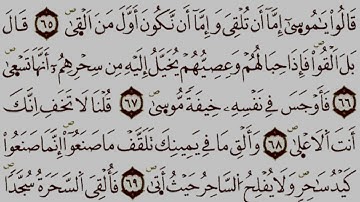 قَالُوا۟ يَٰمُوسَىٰٓ إِمَّآ أَن تُلْقِىَ وَإِمَّآ أَن نَّكُونَ أَوَّلَ مَنْ أَلْقَىٰ ٦٥ قَالَ
بَلْ أَلْقُوا۟ فَإِذَا حِبَالُهُمْ وَعِصِيُّهُمْ يُخَيَّلُ إِلَيْهِ مِن سِحْرِهِمْ أَنَّهَا تَسْعَىٰ
٦٦ فَأَوْجَسَ فِى نَفْسِهِۦ خِيفَةً مُّوسَىٰ ٦٧ قُلْنَا لَا تَخَفْ إِنَّكَ
أَنتَ ٱلْأَعْلَىٰ ٦٨ وَأَلْقِ مَا فِى يَمِينِكَ تَلْقَفْ مَا صَنَعُوٓا۟ إِنَّمَا صَنَعُوا۟
كَيْدُ سَٰحِرٍ وَلَا يُفْلِحُ ٱلسَّاحِرُ حَيْثُ أَتَىٰ ٦٩ فَأُلْقِىَ ٱلسَّحَرَةُ سُجَّدًا